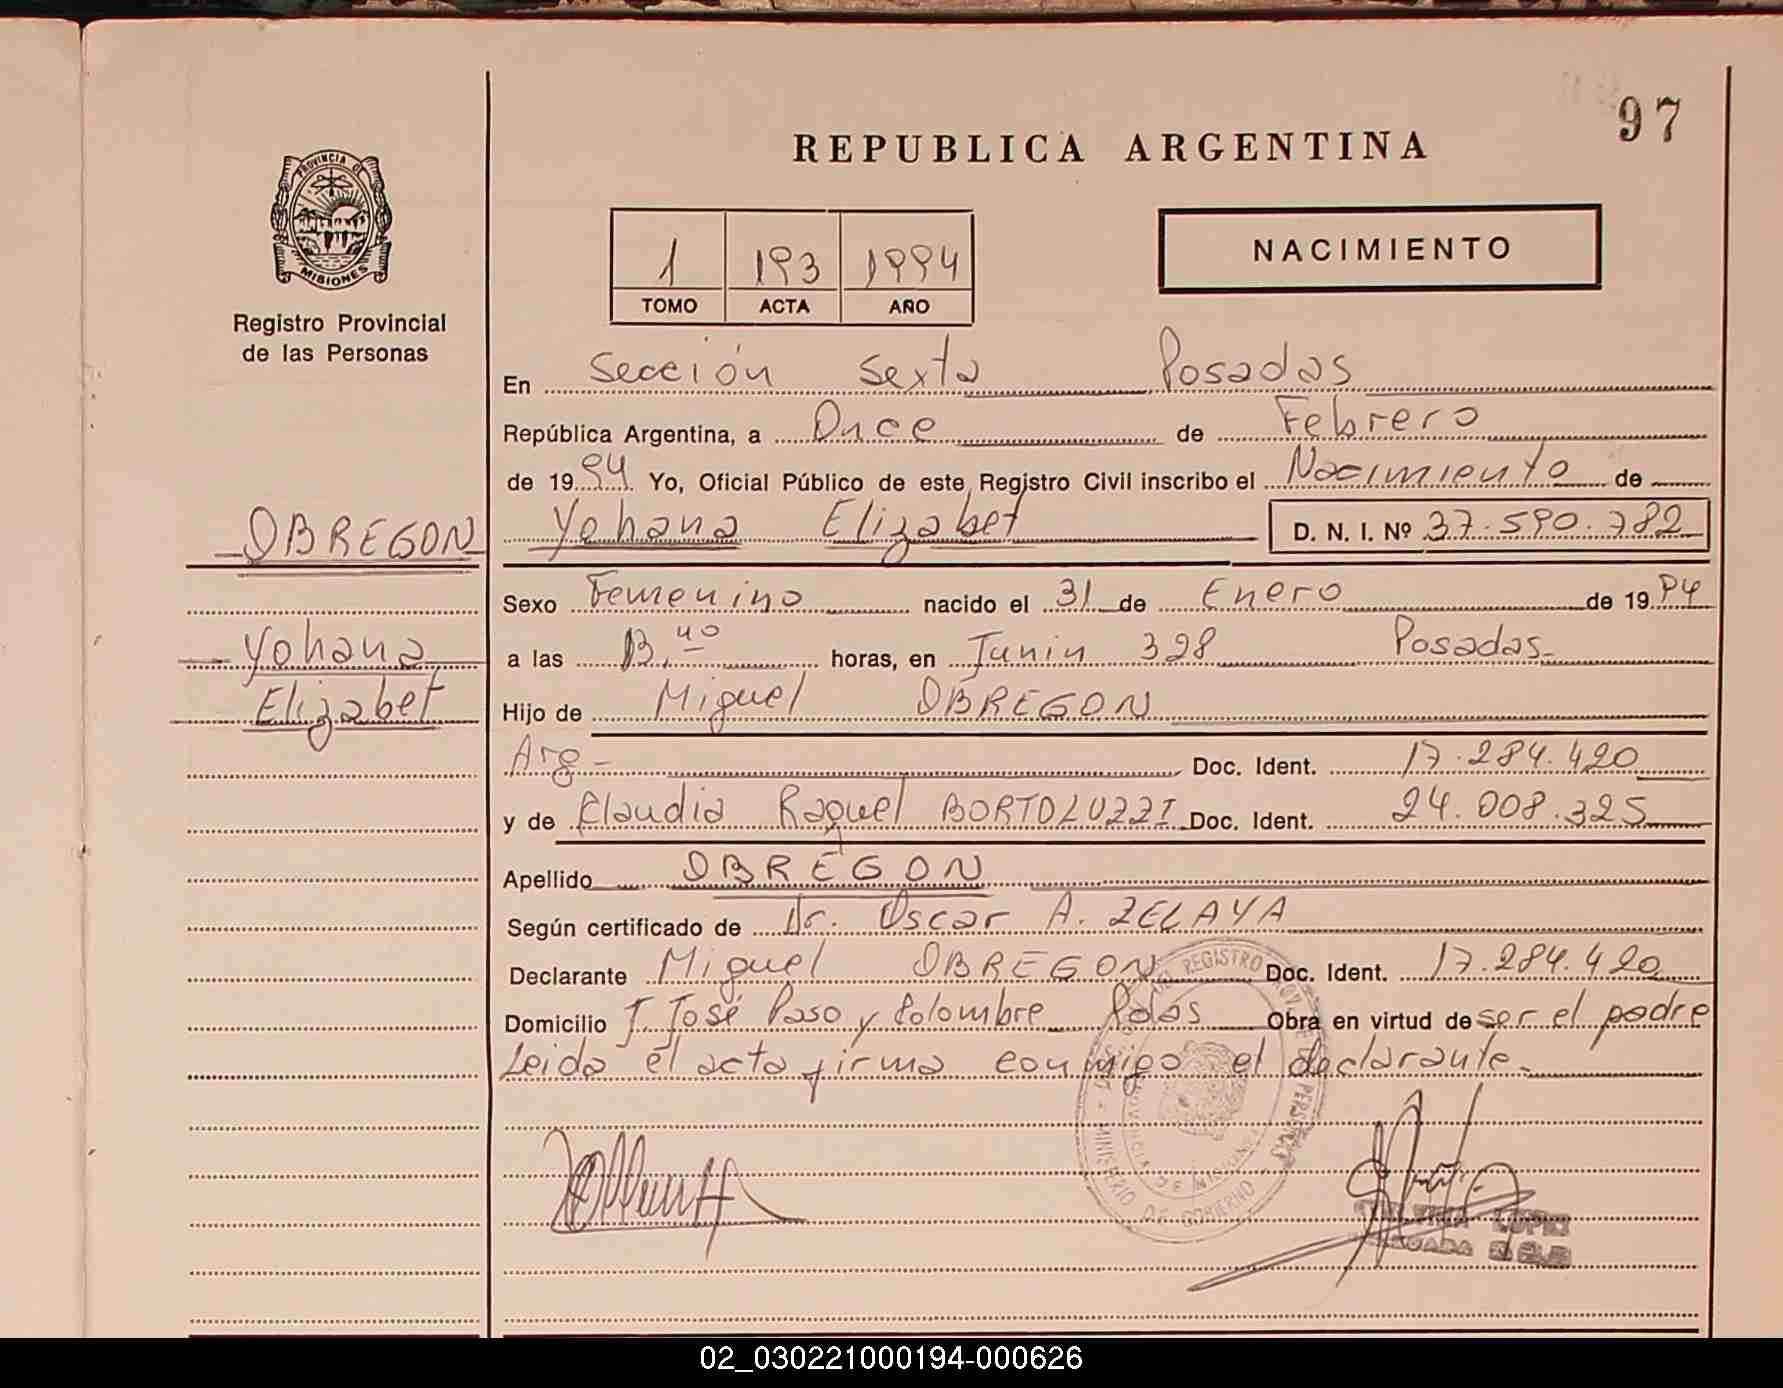 97
REPUBLICA ARGENTINA
PROVINCIA DE MISIONES
Registro Provincial
de las Personas
NACIMIENTO
1 193 1994
TOMO ACTA AÑO
En Sección Sexta Posadas
República Argentina, a Once de Febrero
de 1994 Yo, Oficial Público de este Registro Civil inscribo el Nacimiento de
OBREGON
Yohana Elizabet D. N. I. Nº 37.590.782
Sexo Femenino nacido el 31 de Enero de 1994
Yohana
a las 13,40 horas, en Junin 328 Posadas
Elizabet
Hijo de Miguel OBREGON
Arg - Doc. Ident. 17.284.420
y de Claudia Raquel BORTOLUZZI Doc. Ident. 24.008.325
Apellido OBREGON
Según certificado de Dr. Oscar A. ZELAYA
Declarante Miguel OBREGON Doc. Ident. 17.284.420
Domicilio J. José Paso y Colombre Pdas Obra en virtud de ser el padre
Leida el acta firma conmigo el declarante.-
MINISTERIO DE GOBIERNO
PROVINCIA DE MISIONES
REGISTRO
LOPEZ
02_030221000194-000626